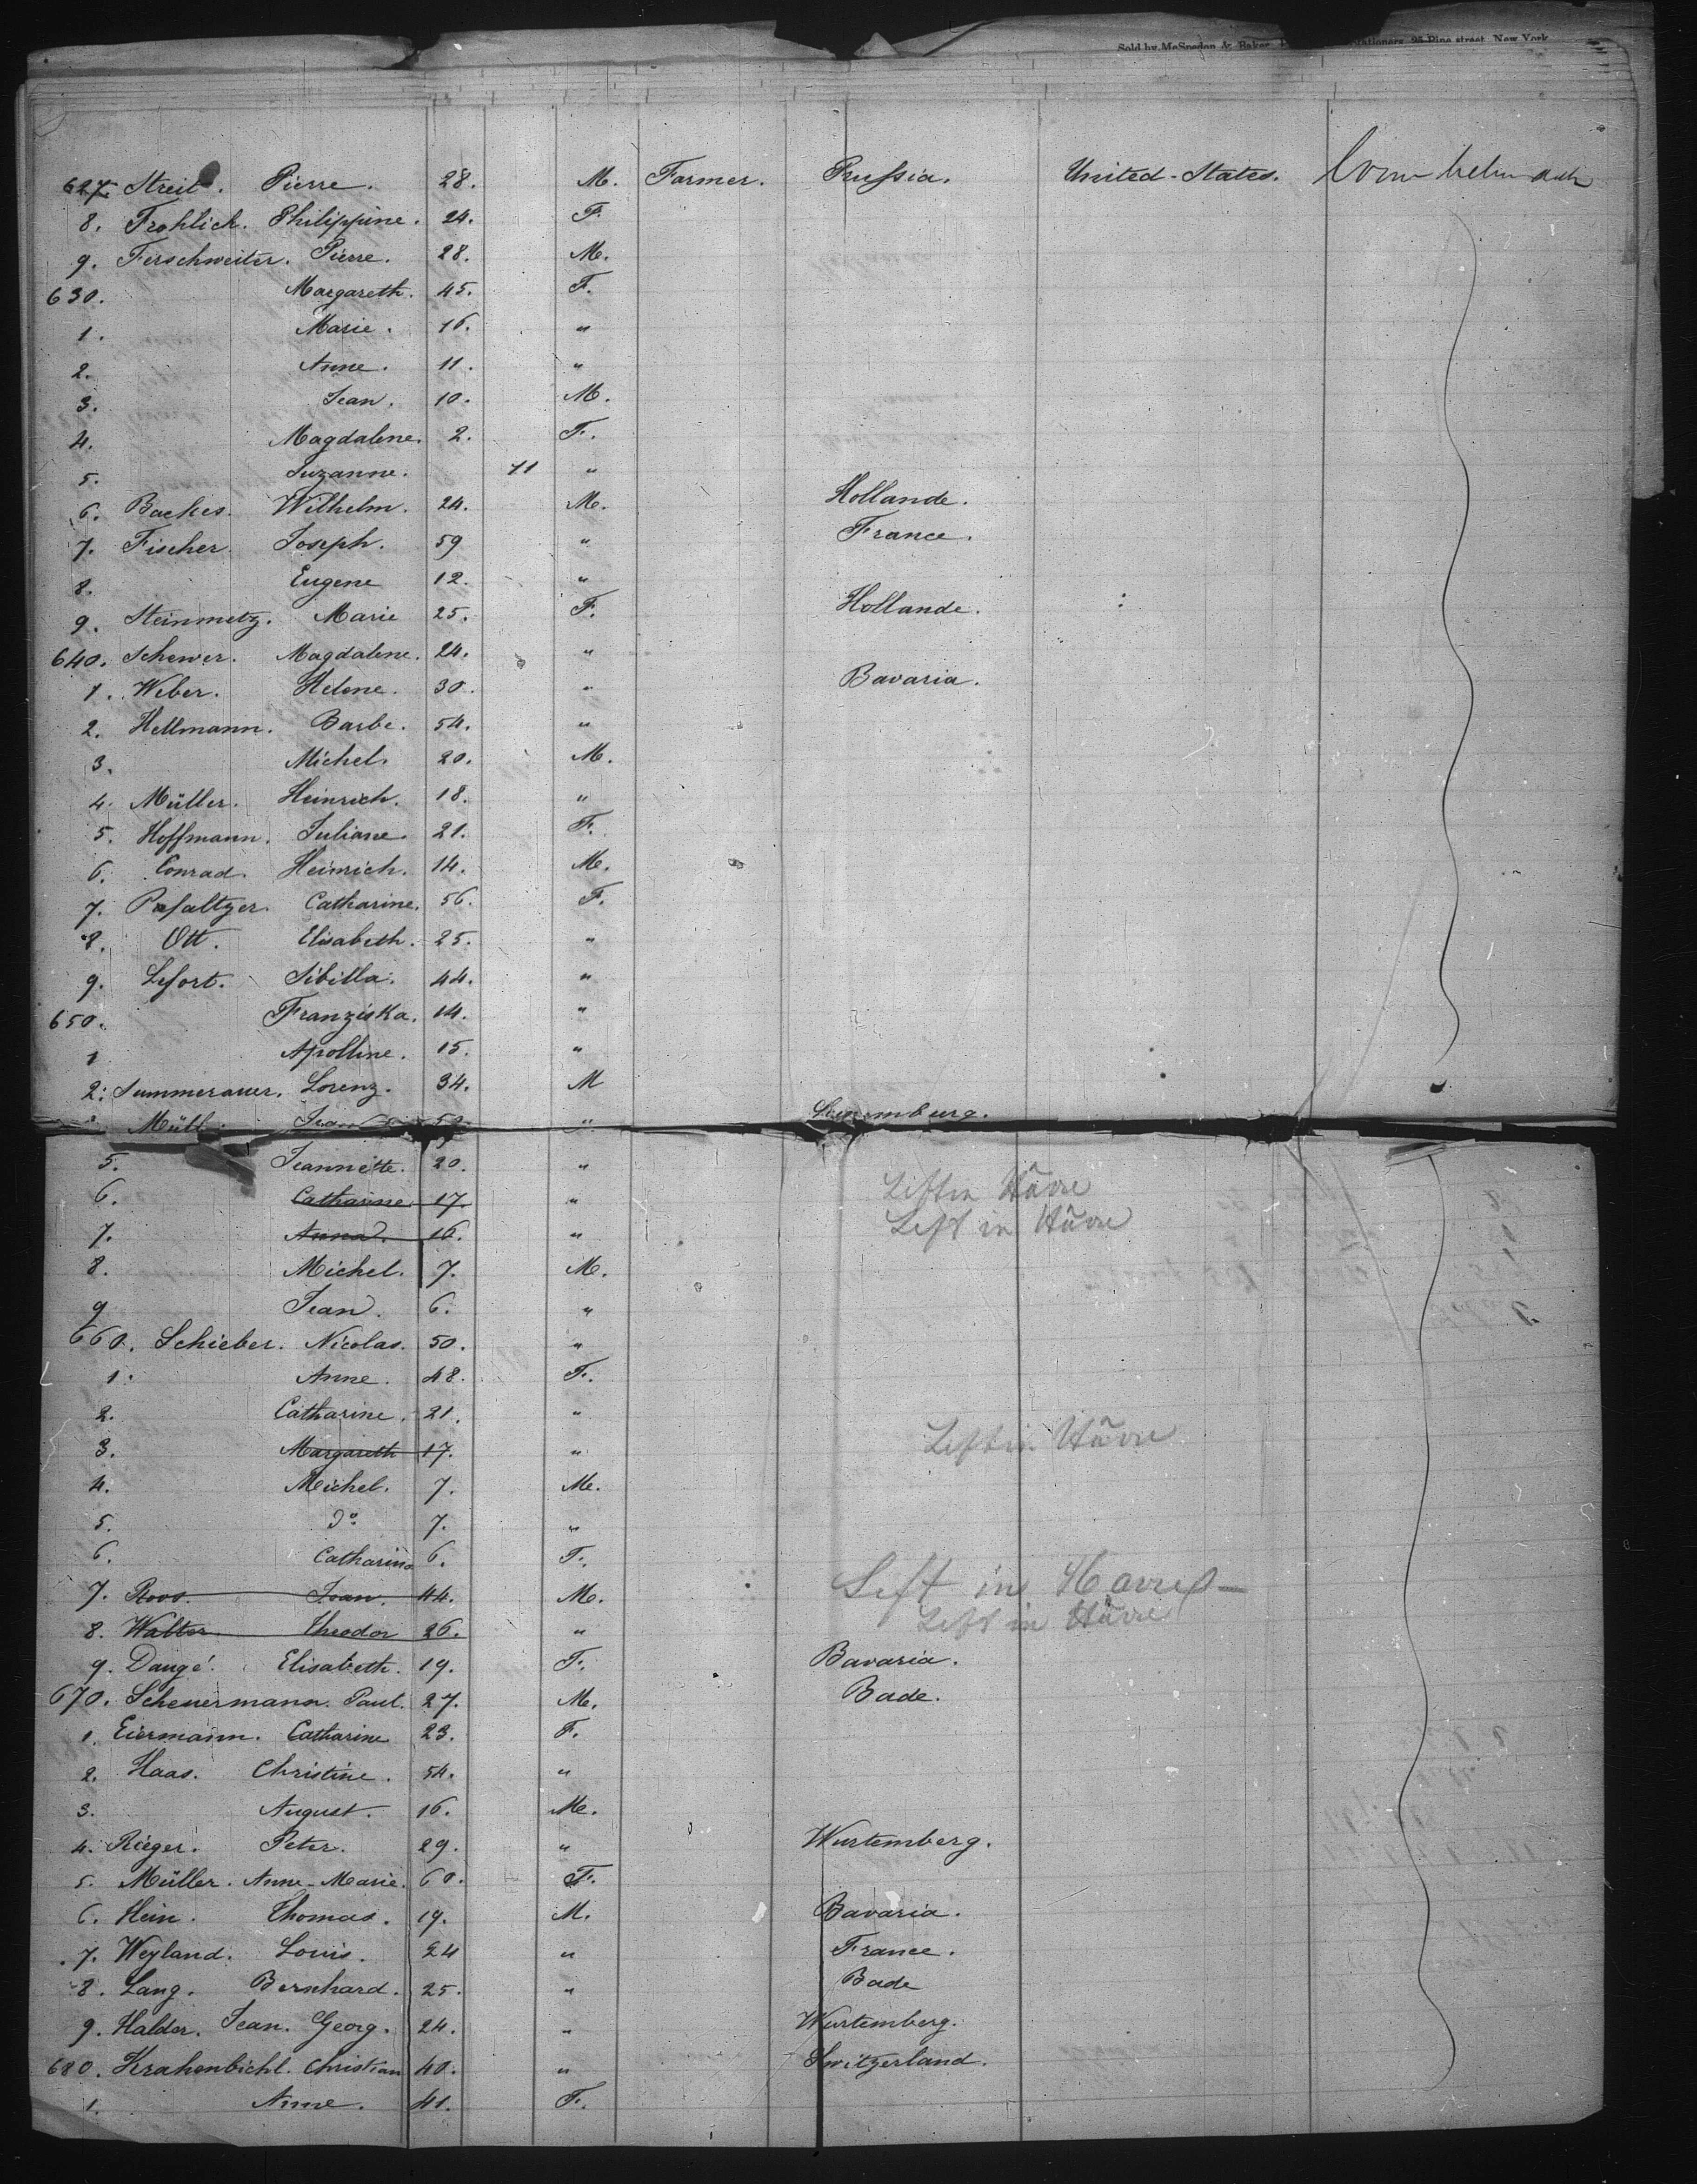 Sold by McSpedon & Baker, Stationers, 25 Pine street, New York
627. Streit. Pierre. 28. M. Farmer. Prussia. United-States.
8. Frohlich. Philippine. 24. F.
9. Ferschweiter. Pierre. 28. M.
630. Margareth. 45. F.
1. Marie. 16. "
2. Anne. 11. "
3. Jean. 10. M.
4. Magdalene. 2. F.
5. Suzanne. 11 "
6. Backes. Wilhelm. 24. M. Hollande.
7. Fischer. Joseph. 59 " France.
8. Eugene 12. "
9. Steinmetz. Marie 25. F. Hollande.
640. Schewer. Magdalene. 24. "
1. Weber. Helene. 30. " Bavaria.
2. Hellmann. Barbe. 54. "
3. Michel. 20. M.
4. Müller. Heinrich. 18. "
5. Hoffmann. Juliane. 21. F.
6. Conrad. Heinrich. 14. M.
7. Pafaltzer. Catharine. 56. F.
8. Ott. Elisabeth. 25. "
9. Lefort. Sibilla. 44. "
650. Franziska. 14. "
1 Apolline. 15. "
2. Summerauer. Lorenz. 34. M
Müll Jean "
5. Jeannette. 20. "
6. Catharine 17. " Left in Hâvre
7. Anna. 16. " Left in Hâvre
8. Michel. 7. M.
9 Jean. 6. "
660. Schieber. Nicolas. 50. "
1. Anne. 48. F.
2. Catharine. 21. "
3. Margareth 17. " Left in Hâvre
4. Michel. 7. M.
5. do 7. "
6. Catharina 6. F.
7. Roos. Jean. 44. M. Left in Havre
8. Walter Theodor 26. " Left in Hâvre
9. Daugé. Elisabeth. 19. F. Bavaria.
670. Scheuermann. Paul. 27. M. Bade.
1. Eiermann. Catharine 23. F.
2. Haas. Christine. 54. "
3. August. 16. M.
4. Rieger. Peter. 29. " Wurtemberg.
5. Müller. Anne-Marie. 60. F.
6. Hein. Thomas. 19. M. Bavaria.
7. Weyland. Louis. 24 " France.
8. Lang. Bernhard. 25. " Bade
9. Halder. Jean. Georg. 24. " Wurtemberg.
680. Krahenbichl. Christian 40. " Switzerland.
1. Anne. 41. F.